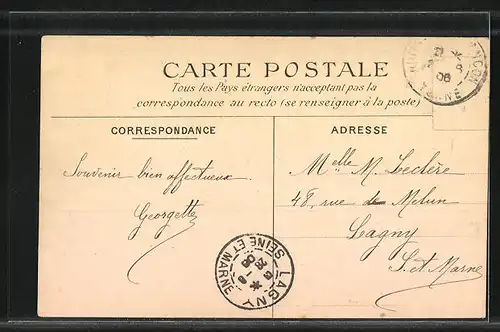 CARTE POSTALE
Tous les Pays étrangers n'acceptant pas la
correspondance au recto (se renseigner à la poste)
CORRESPONDANCE
ADRESSE
Souvenir bien affectueux
Georgette
Melle M. Leclère
48, rue de Melun
Lagny
S. et Marne
LAGNY
SEINE ET MARNE
06